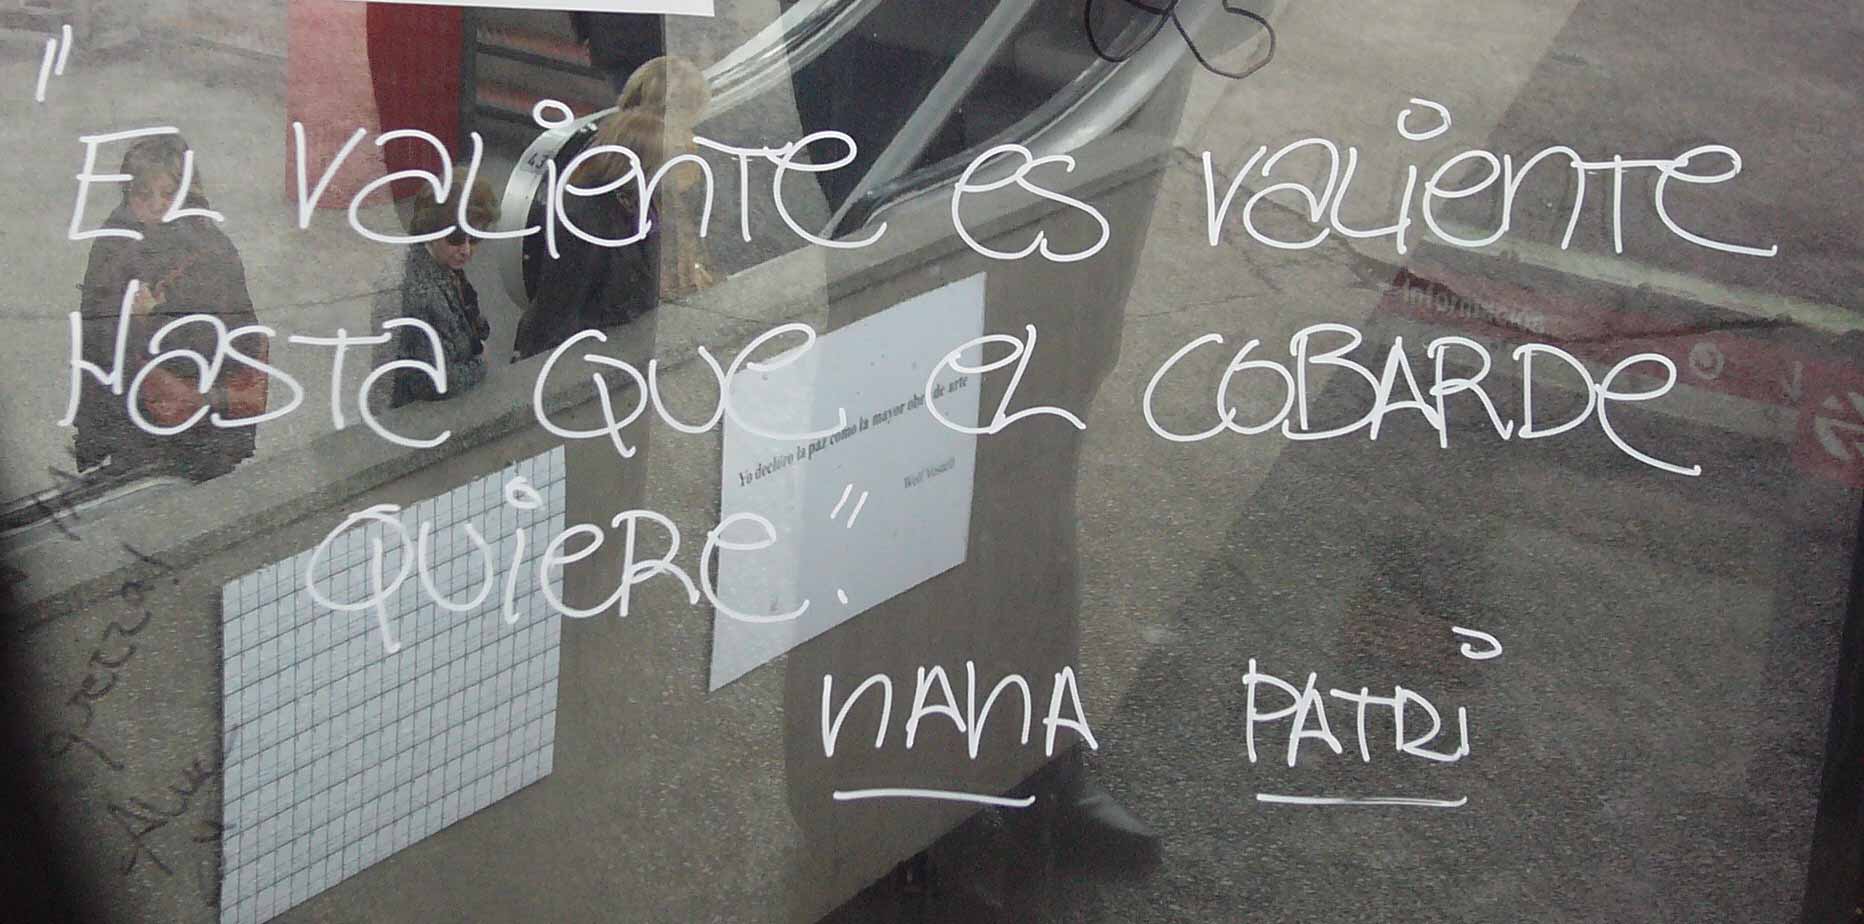 "El valiente es valiente
Hasta que el cobarde
quiere."
nana Patri
Yo declaro la paz como la mayor obra de arte
Wolf Vostell
Información